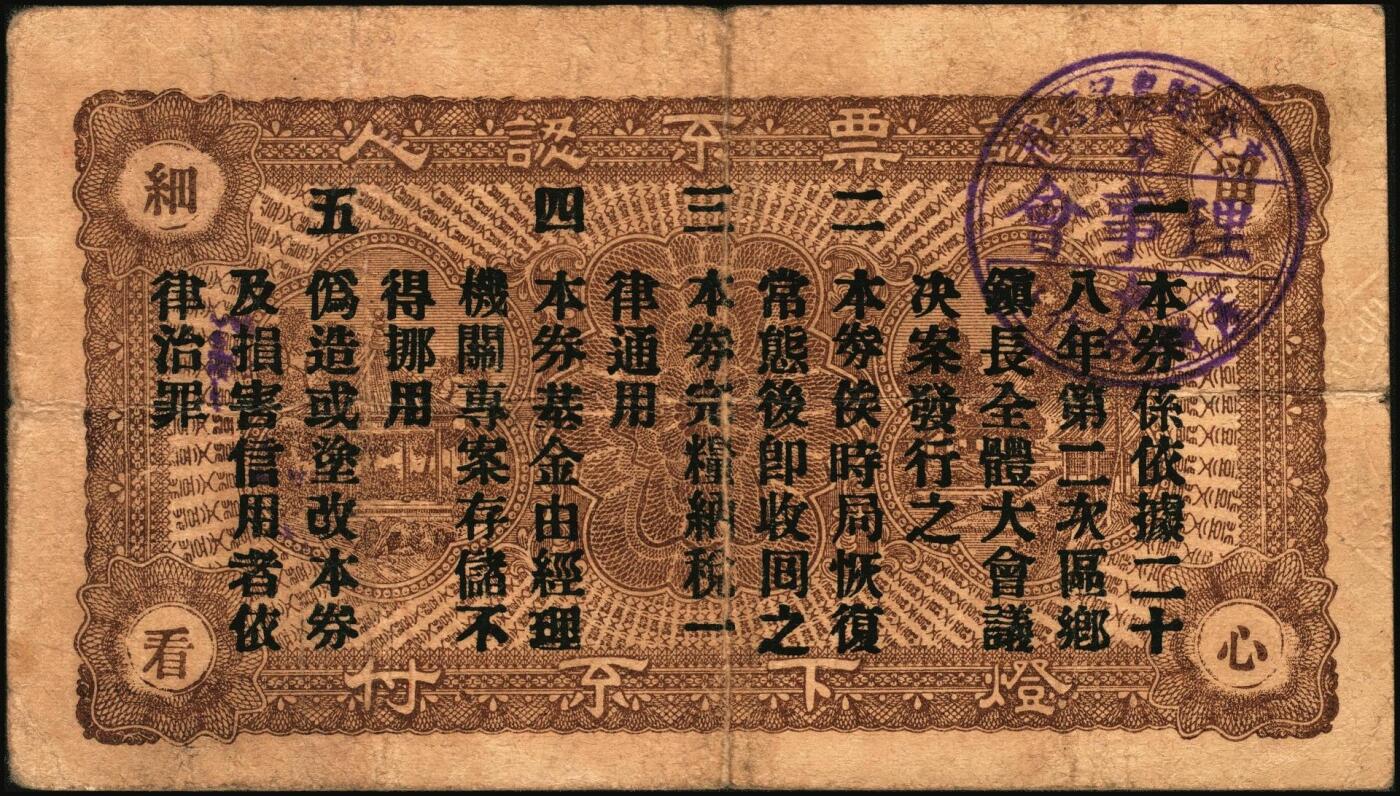 認票不認人
留心細看
一 本券係依據二十
八年第二次區鄉
鎮長全體大會議
决案發行之
二 本券俟時局恢復
常態後卽收囘之
三 本券完糧納稅一
律通用
四 本券基金由經理
機關專案存儲不
得挪用
五 僞造或塗改本券
及損害信用者依
律治罪
燈下不付
理事會